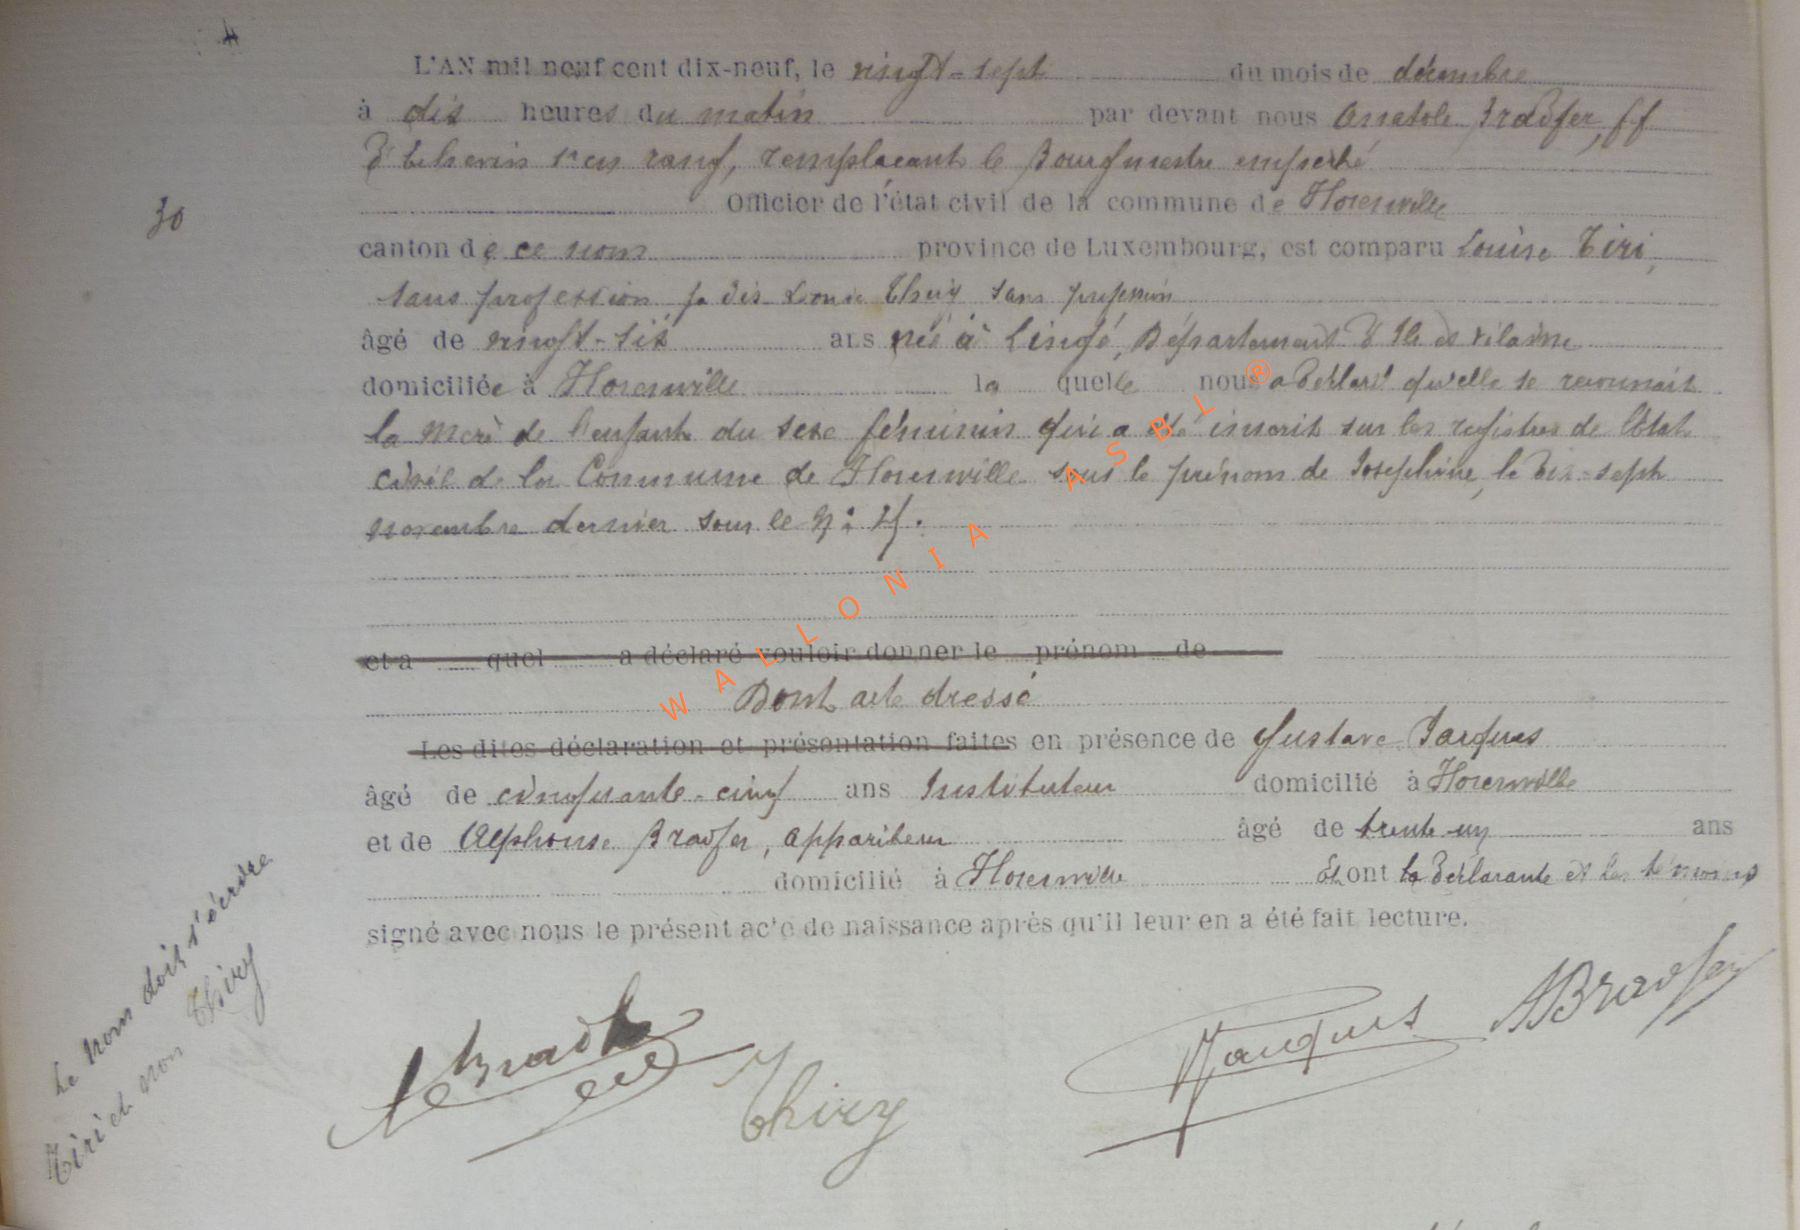 L'AN mil neuf cent dix-neuf, le vingt-sept du mois de décembre
à dix heures du matin par devant nous Anatole Bradfer, ff
d'Echevin 1er en rang, remplaçant le Bourgmestre empêché
30
Officier de l'état civil de la commune de Florenville
canton de ce nom province de Luxembourg, est comparu Louise Tiri,
sans profession Louise Thiry sans profession
âgé de vingt-six ans née à Département d'Ille et Vilaine
domiciliée à Florenville la quelle nous a déclaré qu'elle se reconnait
la mère de l'enfant du sexe féminin qui a été inscrit sur les registres de l'Etat
civil de la Commune de Florenville sous le prénom de Joséphine, le dix-sept
novembre dernier sous le N°
et a quel a déclaré vouloir donner le prénom de
Dont acte dressé
Les dites déclaration et présentation faites en présence de Gustave Jacques
âgé de cinquante-cinq ans Instituteur domicilié à Florenville
et de Alphonse Bradfer, appariteur âgé de trente-un ans
domicilié à Florenville Et ont la déclarante et les témoins
signé avec nous le présent acte de naissance après qu'il leur en a été fait lecture.
Le nom doit s'écrire
Tiri et non Thiry
Bradfer
Thiry
Jacques
ABradfer
WALLONIA ASBL ®